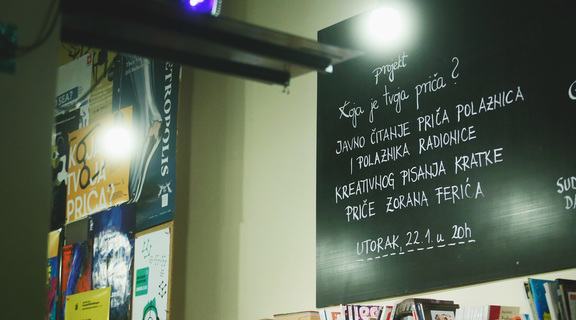 projekt
Koja je tvoja priča?
JAVNO ČITANJE PRIČA POLAZNICA
I POLAZNIKA RADIONICE
KREATIVNOG PISANJA KRATKE
PRIČE ZORANA FERIĆA
UTORAK, 22.1. u 20h
SUD
KOJA
TVOJA
PRICA?
TROPOLIS